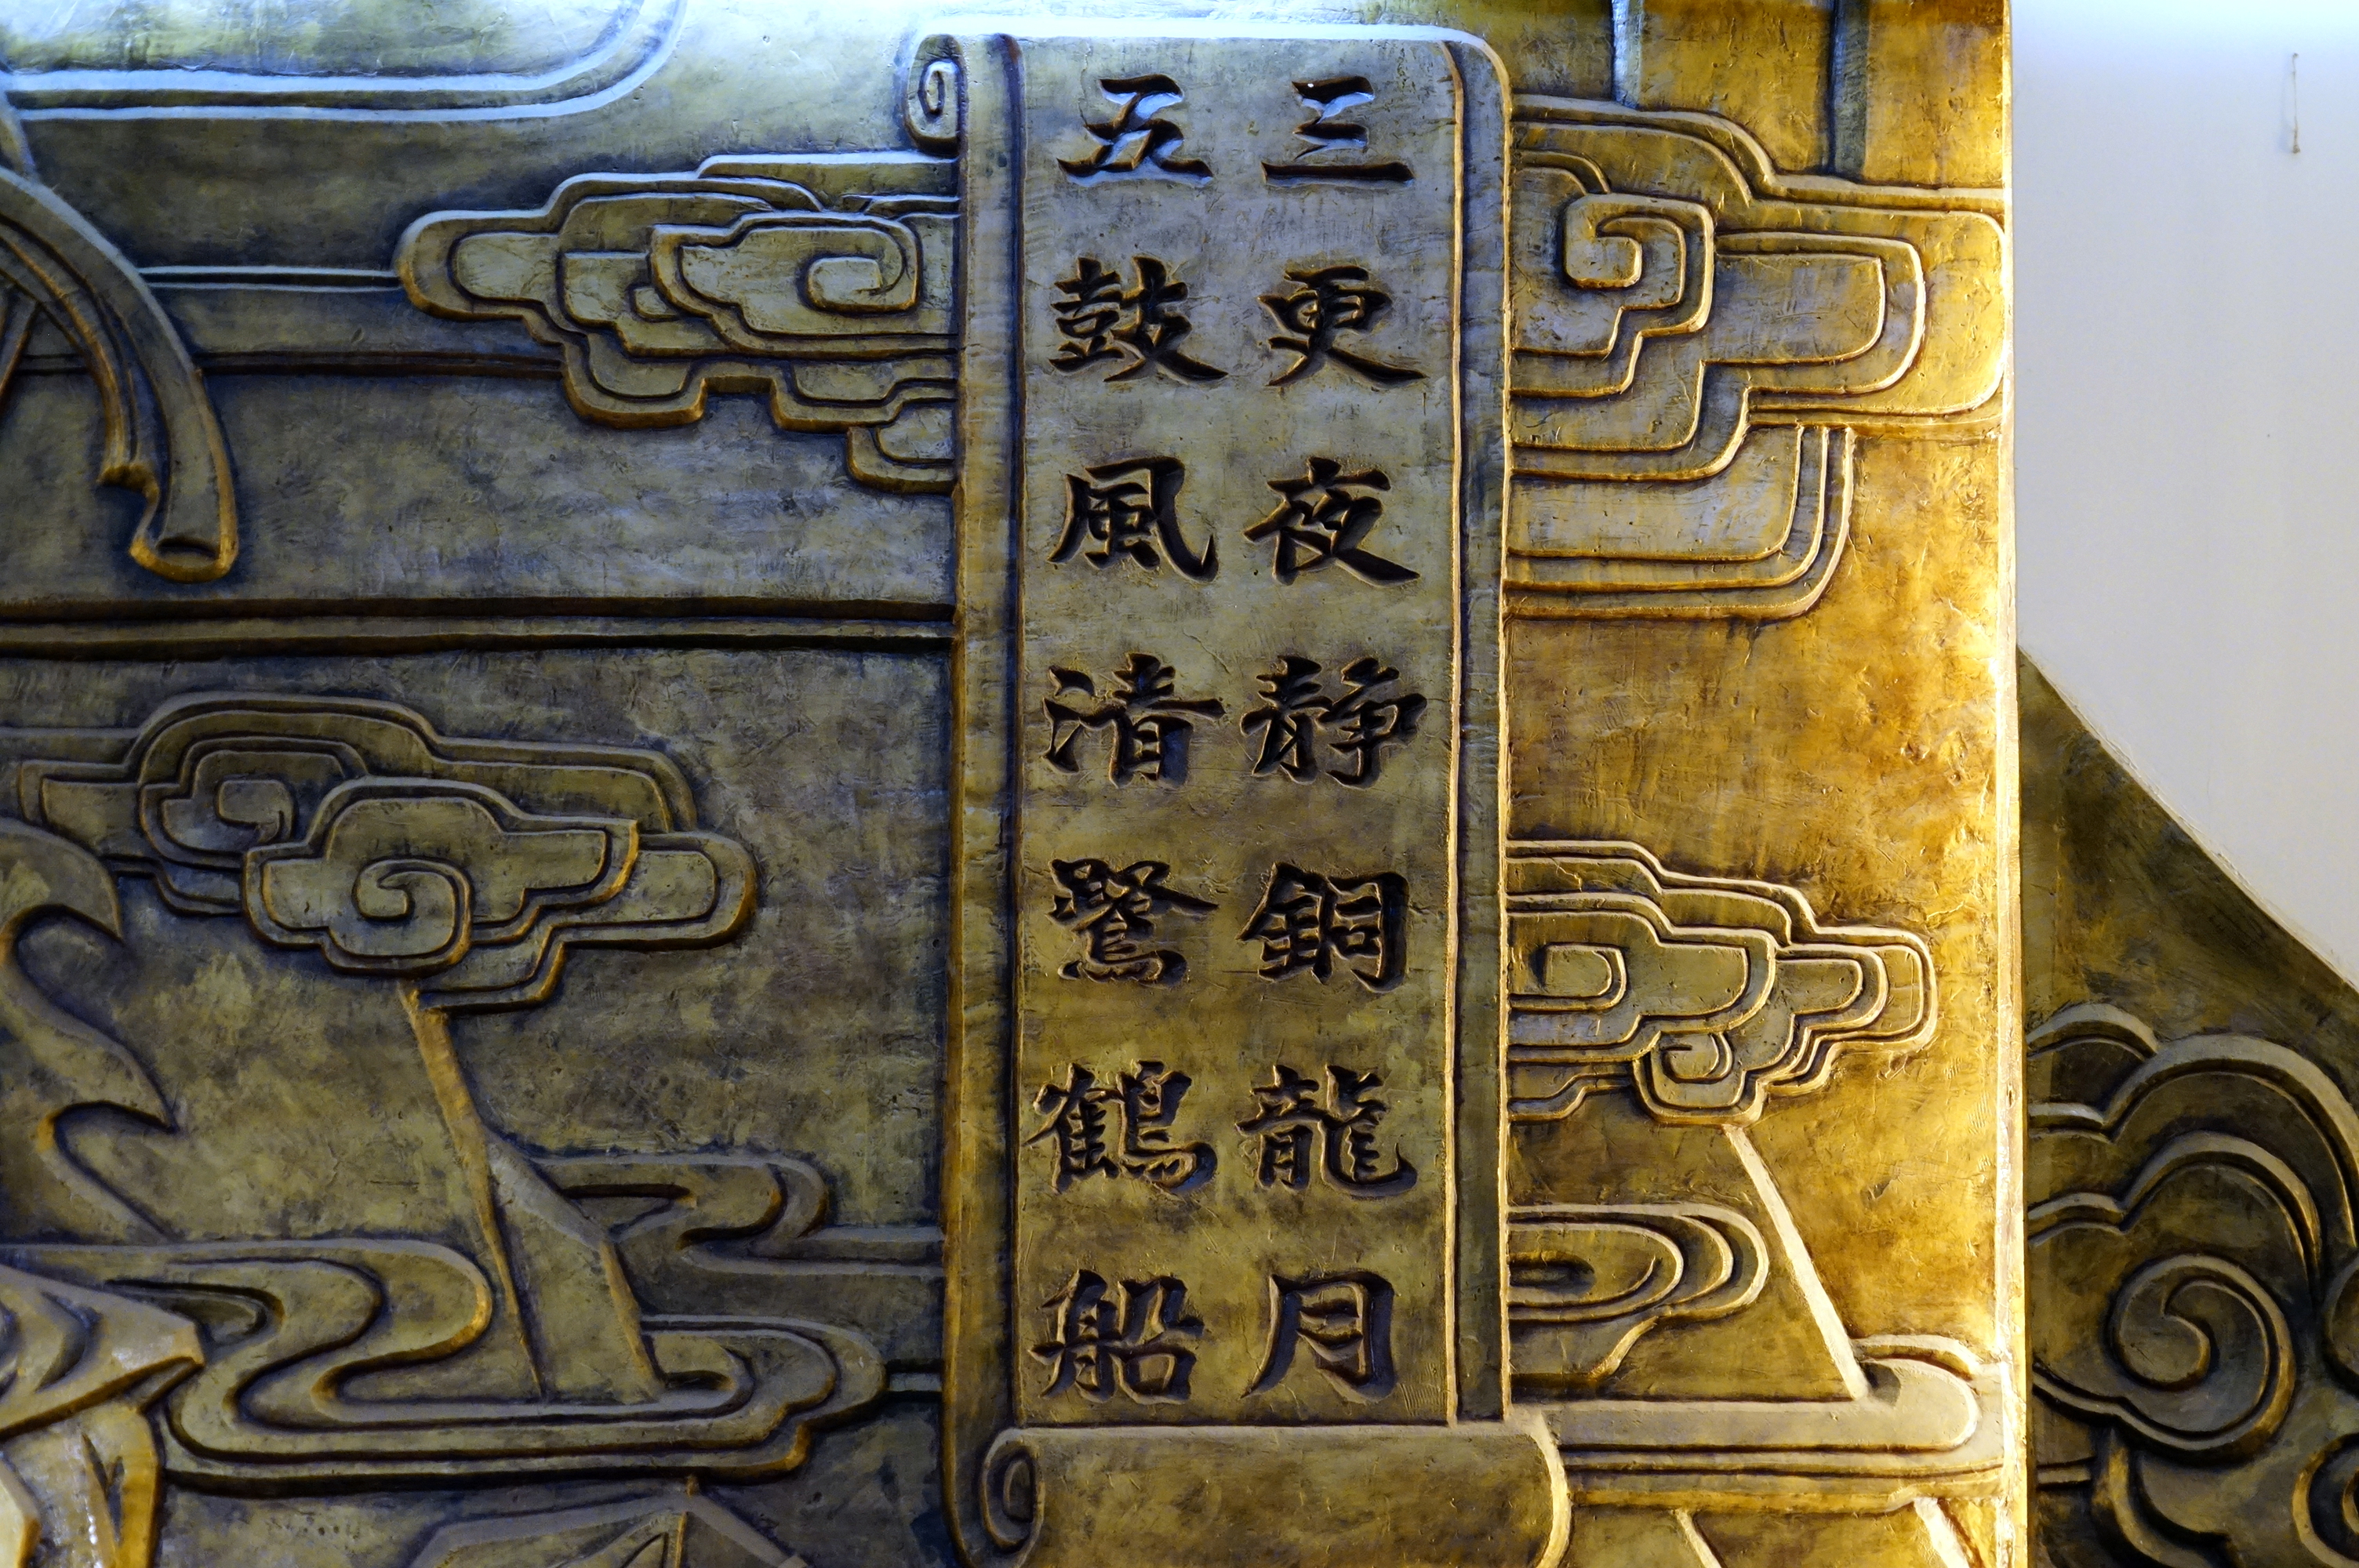 三更夜静銅龍月
五鼓風清鷖鶴船